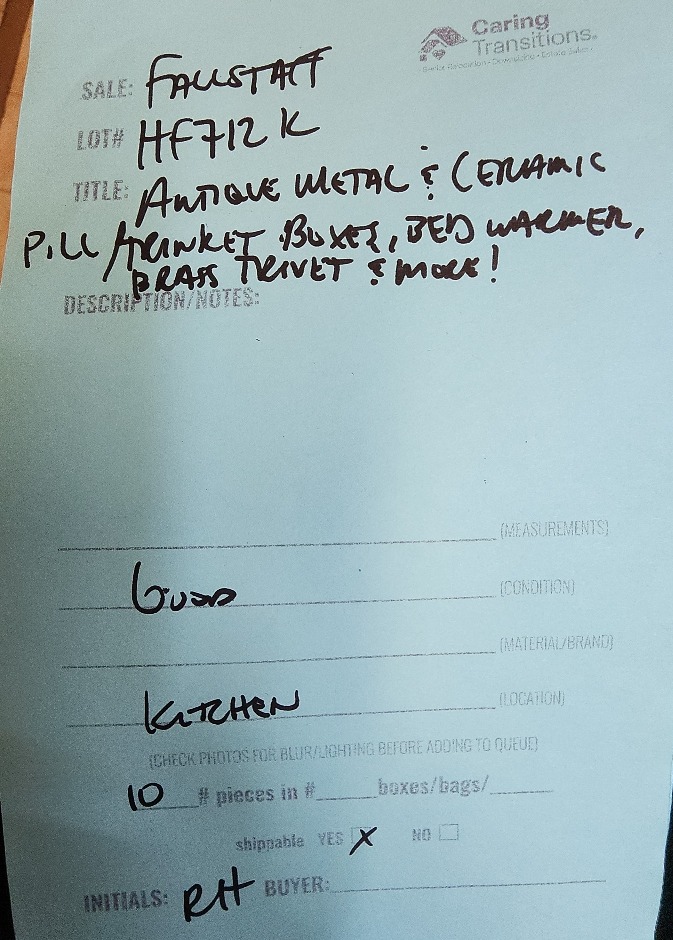 Caring
Transitions®
Senior Relocation • Downsizing • Estate Sales
SALE: FALLSTAFF
LOT# HF712K
TITLE: ANTIQUE METAL & CERAMIC
PILL/TRINKET BOXES, BED WARMER,
BRASS TRIVET & MORE!
DESCRIPTION/NOTES:
(MEASUREMENTS)
GOOD (CONDITION)
(MATERIAL/BRAND)
KITCHEN (LOCATION)
(CHECK PHOTOS FOR BLUR/LIGHTING BEFORE ADDING TO QUEUE)
10 # pieces in #______boxes/bags/______
shippable YES X NO
INITIALS: RH BUYER: